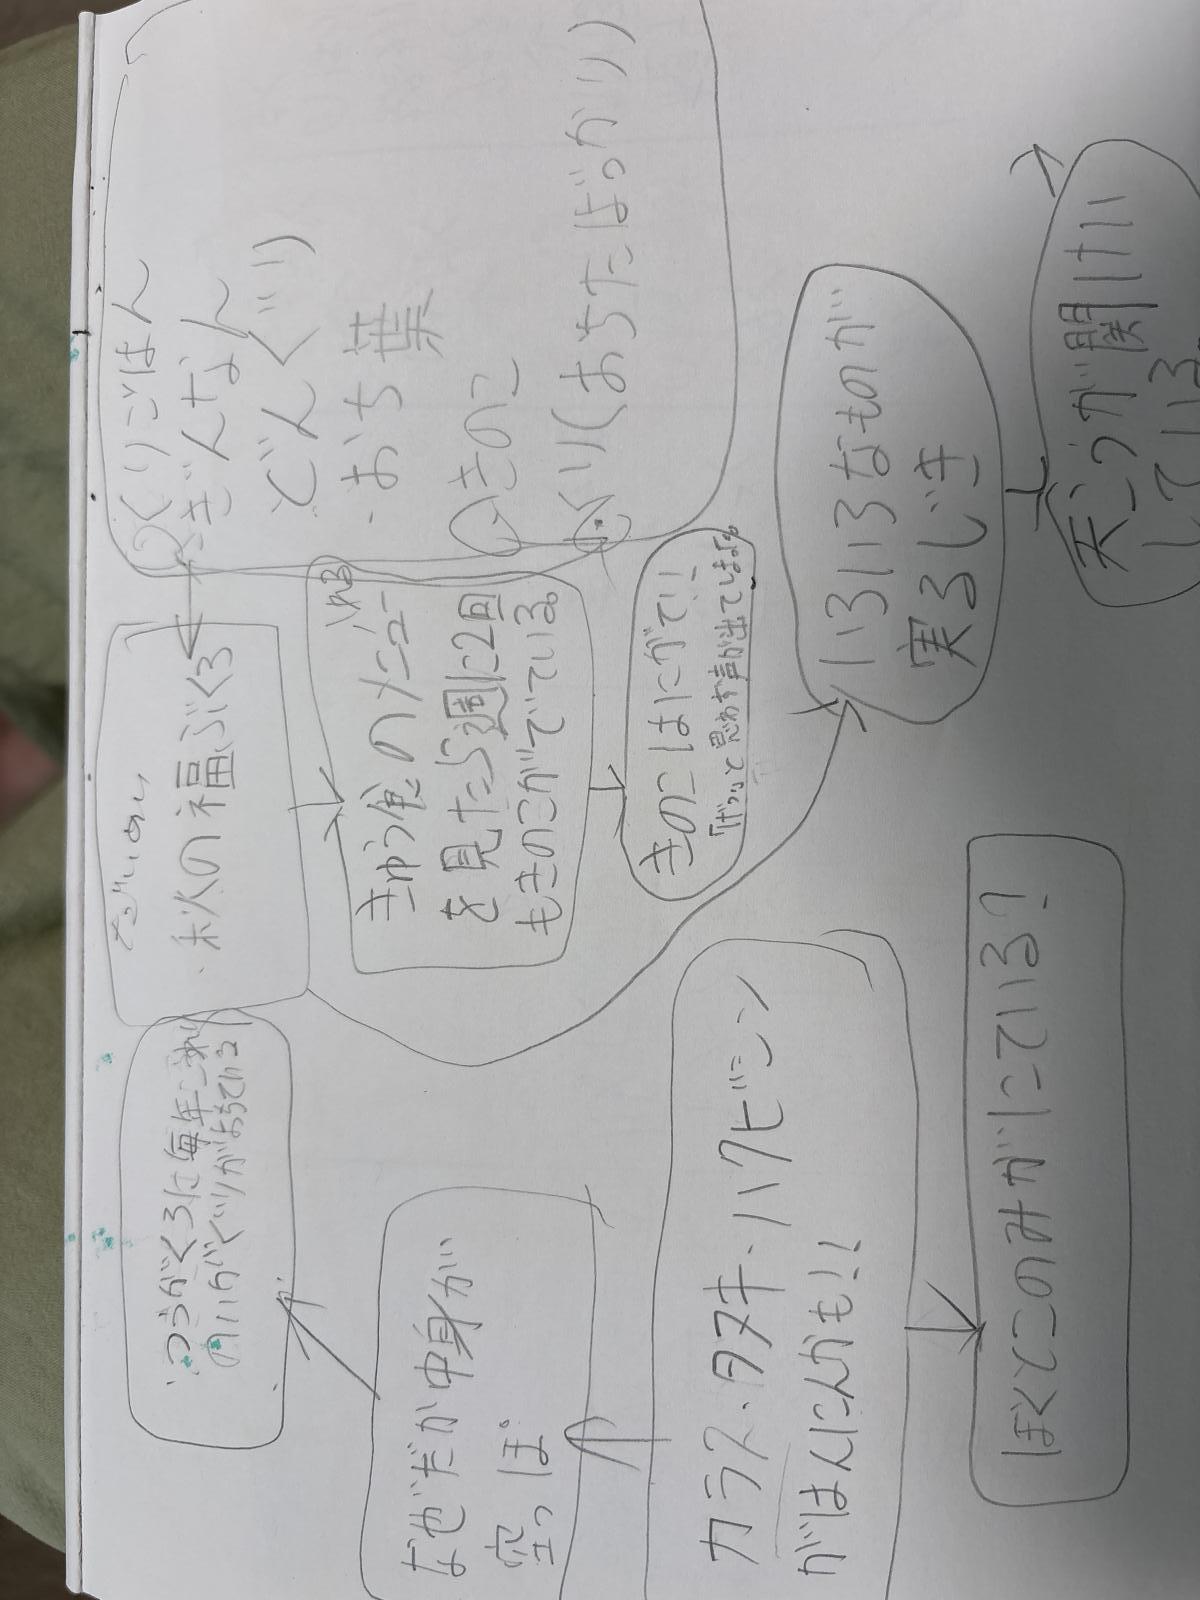 だいめい
・秋の福ぶくろ
くりごはん
・ぎんなん
どんぐり
・おち葉
きのこ
くり(おちたばっかり)
いれる
きゅう食のメニュー
を見たら週に2回
もきのこがでている。
きのこはにがてい!
「げっ」と思わず声が出てしまう。
いろいろなものが
実るじき
天こうが関けい
している。
つうがくろに毎年
のいがぐりがおちている
なぜだか中身が
空っぽ
カラス・タヌキ・ハクビシン
がはんにんかも!!
ぼくとこのみがにている?